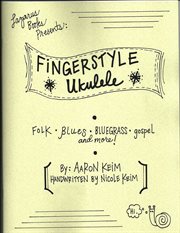 Lazarus Books
Presents:
FiNGERSTYLE
Ukulele
FOLK • Blues • BLUEGRASS • gospel
and more!
BY: AARON KEIM
HANDWRITTEN BY NICOLE KEIM
Hi.